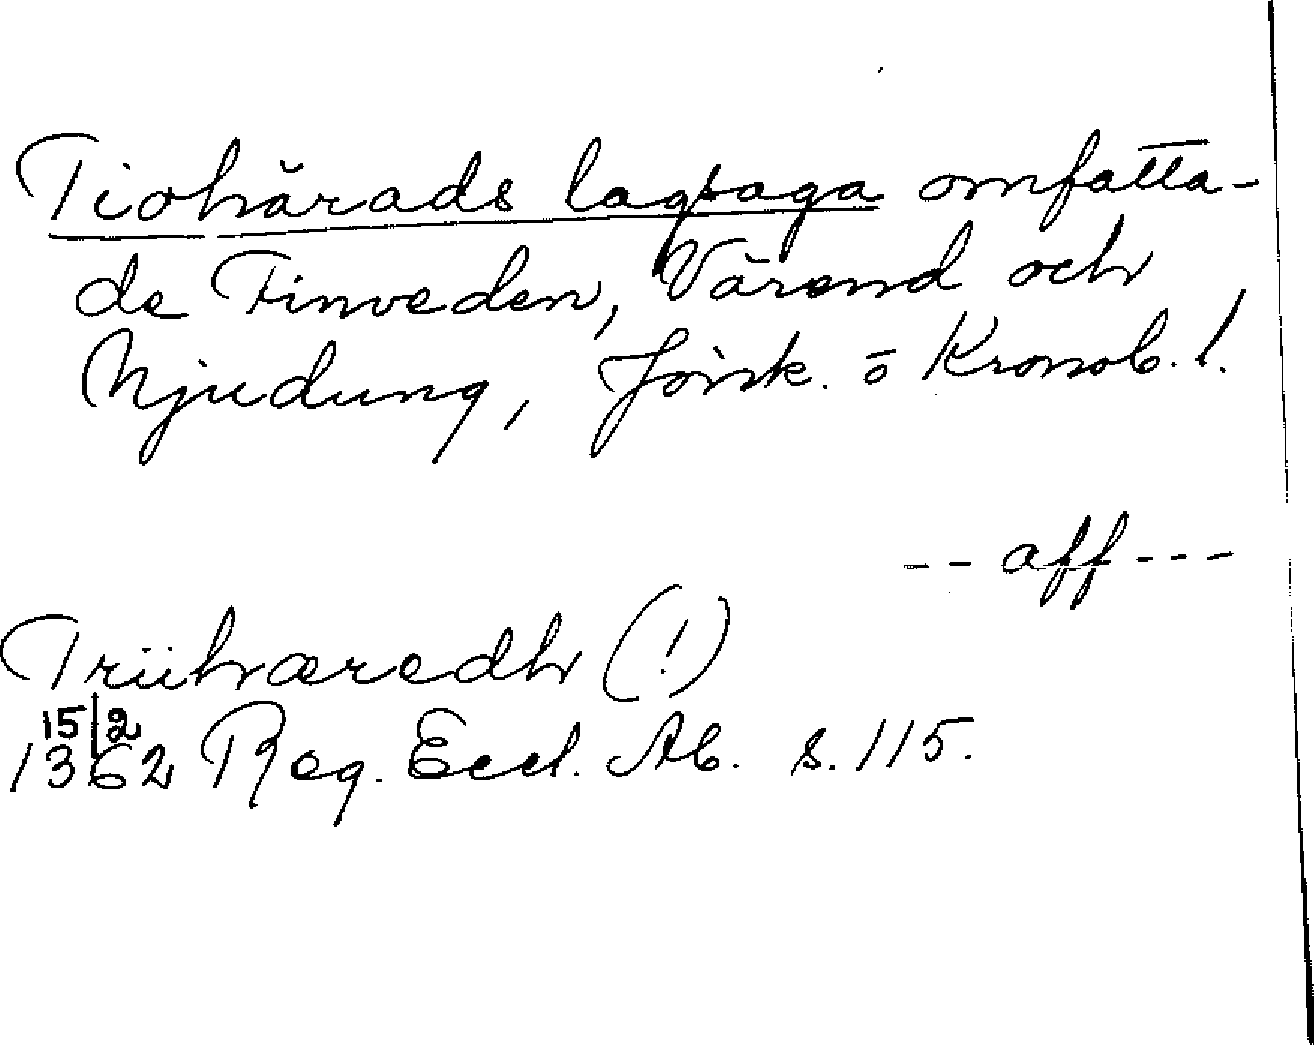 Tiohärads lagsaga omfatta-
de Finveden, Värend och
Njudung, Jönk. o Kronob. l.
-- aff ---
Triihæredh (!)
15/2
1362 Reg. Eccl. Ab. s. 115.